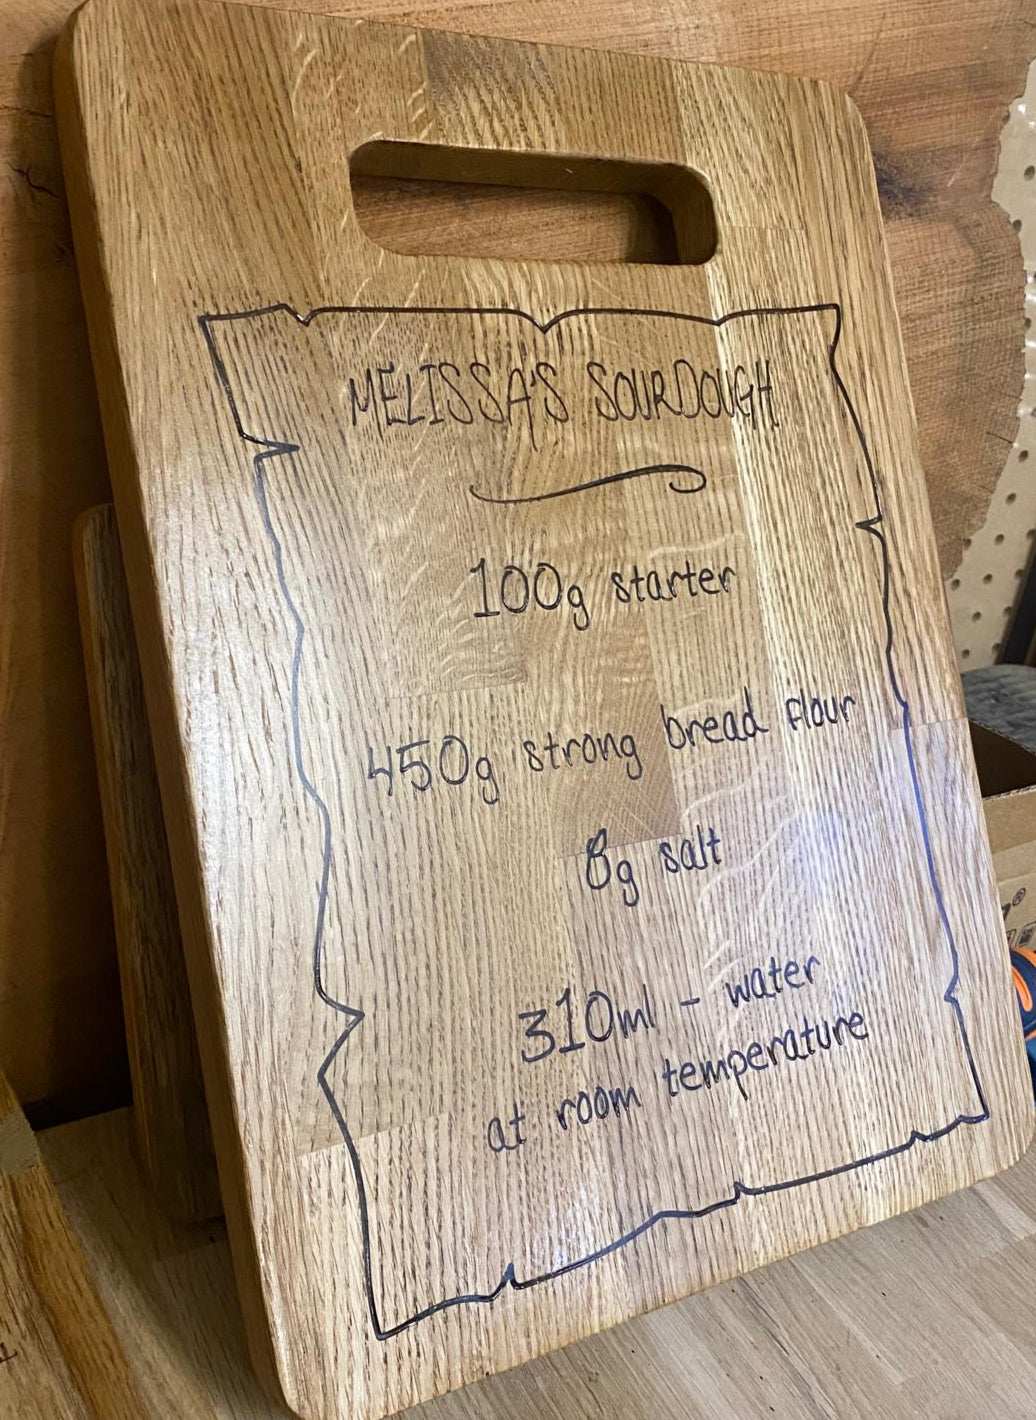 MELISSA'S SOURDOUGH
100g starter
450g strong bread flour
8g salt
310ml - water
at room temperature